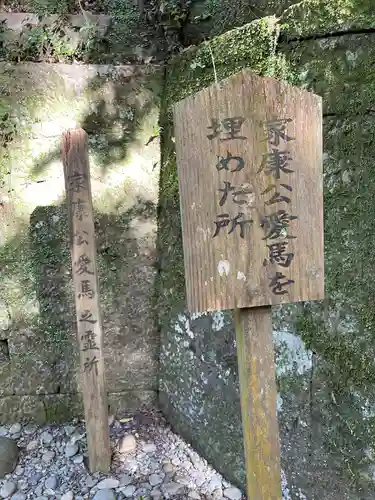 家康公愛馬を
埋めた所
家康公愛馬之霊所